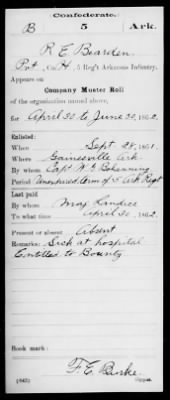 Confederate.
B 5 Ark.
R. E. Bearden
Pvt, Co. H, 5 Reg't Arkansas Infantry.
Appears on
Company Muster Roll
of the organization named above,
for April 30 to June 30, 1862.
Enlisted:
When Sept 28, 1861.
Where Gainesville Ark
By whom Capt
Period Unexpired term of 5 Ark Regt
Last paid:
By whom Maj
To what time April 30, 1862.
Present or absent Absent
Remarks: Sick at hospital
Entitled to Bounty
Book mark:
F. E. Burke
(642) Copyist.